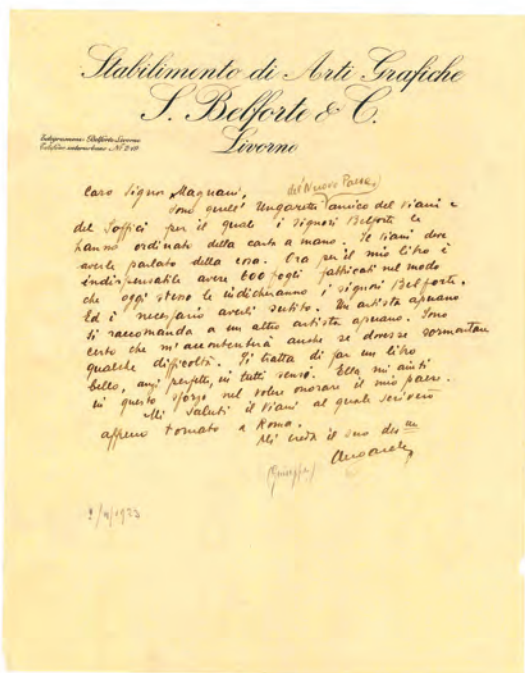 Stabilimento di Arti Grafiche
S. Belforte & C.
Livorno
Telegrammi: Belforte Livorno
Telefono interurbano N. 2-48
Caro Signor Magnani,
del "Nuovo Paese"
sono quell' Ungaretti amico del Viani e
del Soffici per il quale i signori Belforte le
hanno ordinato della carta a mano. Il Viani deve
averle parlato della cosa. Ora per il mio libro è
indispensabile avere 600 fogli fabbricati nel modo
che oggi stesso le indicheranno i signori Belforte.
Ed è necessario averli subito. Un artista apuano
si raccomanda a un altro artista apuano. Sono
certo che m'accontenterà anche se dovesse sormontare
qualche difficoltà. Si tratta di far un libro
bello, anzi perfetto, in tutti i sensi. Ella mi aiuti
in questo sforzo nel voler onorare il mio paese.
Mi saluti il Viani al quale scriverò
appena tornato a Roma.
Mi creda il suo dev.mo
Ungaretti
(Giuseppe)
2/4/1923